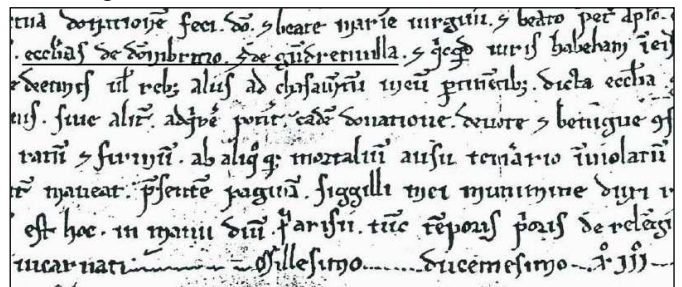 donatione feci. dō. ⁊ beate marie uirgini. ⁊ beato pet̄ apło.
. ecclias de dōmbrno. ⁊ de gūdreuuilla. ⁊ qͥcqͥd iuris habebam ī eis
decimis uł reb; aliis ad meū ꝑtinētib; dicta ecclīa
siue alit̄. adqͥrē potit̄. eadē donatione. deuote ⁊ benigne ꝯf
ratū ⁊ firmū. ab aliqͦ qͥ; mortaliū ausu temario īuiolatū
maneat. p̄sentē paginā. siggilli mei munimine duxi r
est hoc. in manu dn̄i parisii. tūc tēporis pͥoris de relegi
incarnati Millesimo ducentesimo iij